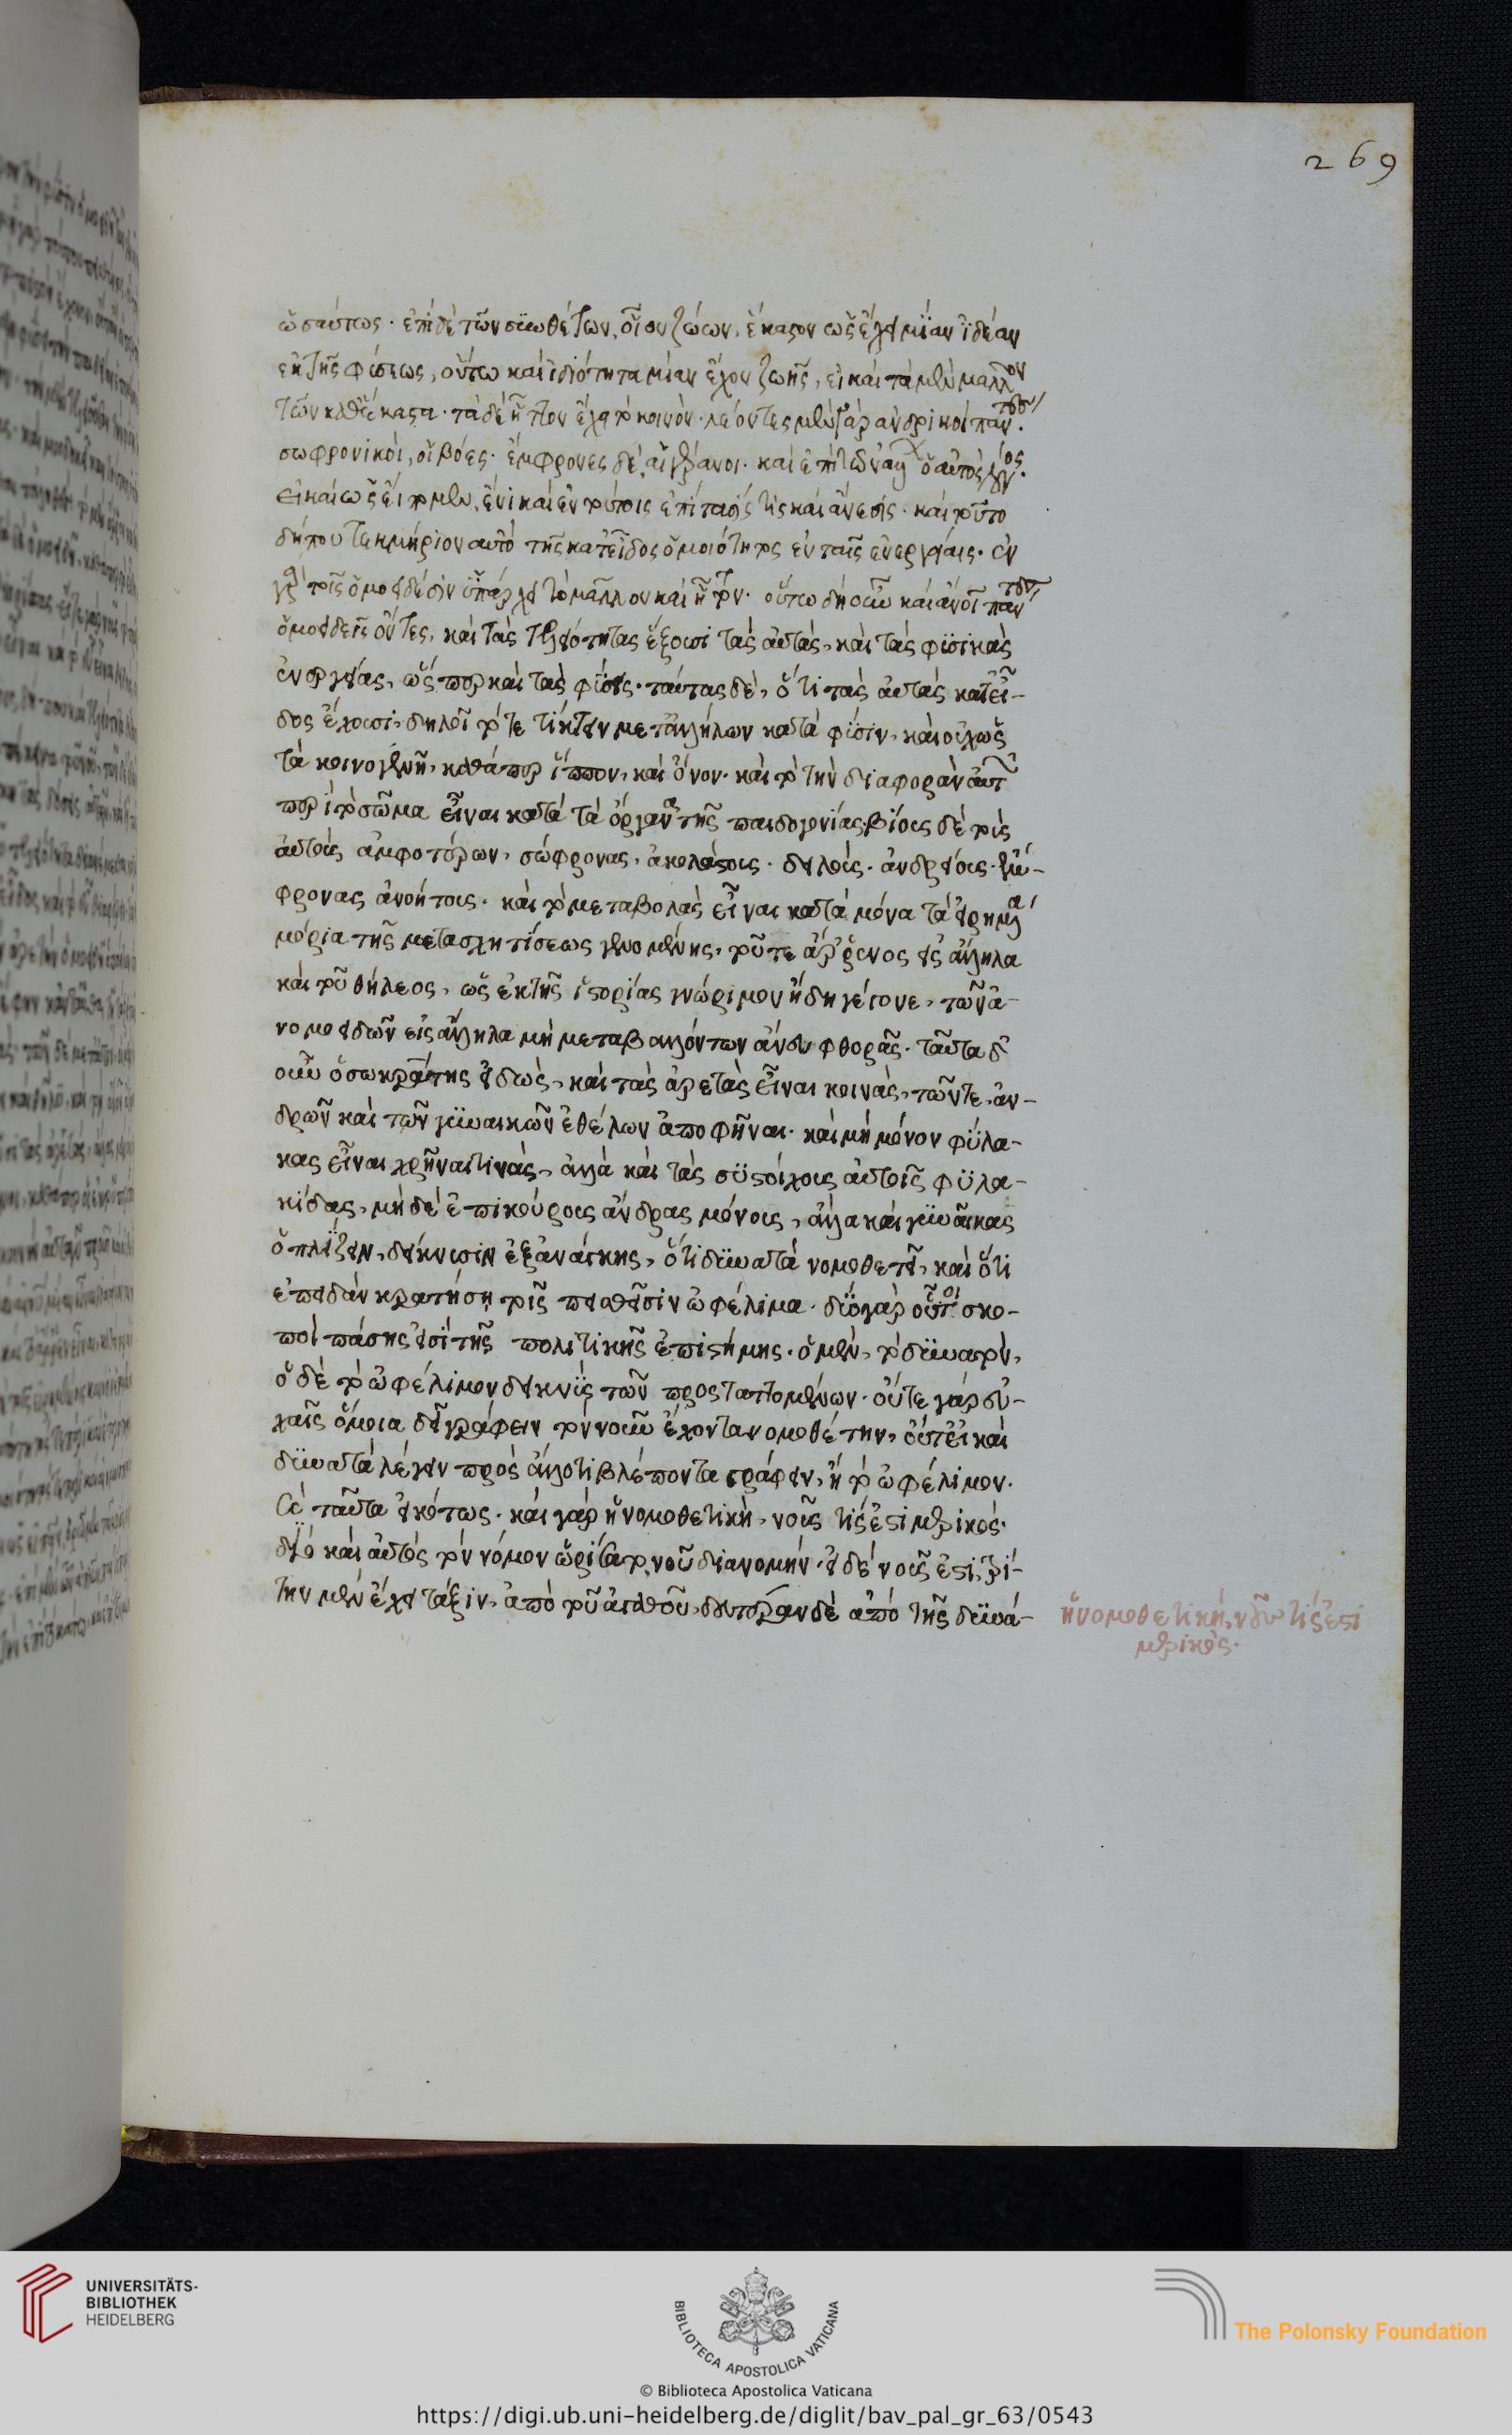 269
ὡσαύτως. ἐπὶ δὲ τῶν συνθέτων, οἷον ζώων, ἕκαστον ὡς ἔχει μίαν ἰδέαν
ἐκ τῆς φύσεως, οὕτω καὶ ἰδιότητα μίαν ἔχον ζωῆς, εἰ καὶ τὰ μὲν μᾶλλον
τῶν καθέκαστα. τὰ δὲ ἧττον ἔχει τὸ κοινὸν. λέοντες μὲν γὰρ ἀνδρικοὶ πάντες.
σωφρονικοὶ, οἱ βόες. ἔμφρονες δὲ, αἱ γέρανοι. καὶ ἐπὶ τῶν ὁ αὐτὸς λόγος.
εἰ καὶ ὡς ἔν τῳ μὲν, ἑνὶ καὶ ἐν τούτοις ἐπίτασίς τις καὶ ἄνεσις. καὶ τοῦτο
δήπου τεκμήριον αὐτὸ τῆς κατεῖδος ὁμοιότητος ἐν ταῖς ἐνεργείαις. ἐν
γὰρ τοῖς ὁμοειδέσιν ὑπάρχει τὸ μᾶλλον καὶ ἧττον. οὕτω δὴ οὖν καὶ ἄνοι πάντες
ὁμοειδεῖς ὄντες, καὶ τὰς τελειότητας ἕξουσι τὰς αὐτὰς, καὶ τὰς φυσικὰς
ἐνεργείας, ὥσπερ καὶ τὰς φύσεις. ταύτας δὲ, ὅτι τὰς αὐτὰς κατεῖ-
δος ἔχουσι, δηλοῖ τό τε τίκτειν μετἀλλήλων κατὰ φύσιν, καὶ οὐχ ὡς
τὰ κοινογενῆ, καθάπερ ἵππον, καὶ ὄνον. καὶ τὸ τὴν διαφορὰν αὐτῶν
περὶ τὸ σῶμα εἶναι κατὰ τὰ ὄργανα τῆς παιδογονίας. βίους δὲ τοὺς
αὐτοὺς ἀμφοτέρων, σώφρονας, ἀκολάστους. δειλοὺς. ἀνδρείους. ἔμ-
φρονας ἀνοήτους. καὶ τὸ μεταβολὰς εἶναι κατὰ μόνα τὰ εἰρημένα
μόρια τῆς μετασχητίσεως γενομένης, τοῦ τε ἄρρενος εἰς ἄλληλα
καὶ τοῦ θήλεος, ὡς ἐκ τῆς ἱστορίας γνώριμον ἤδη γέγονε, τῶν ἀ-
νομοειδῶν εἰς ἄλληλα μὴ μεταβαλλόντων ἄνευ φθορᾶς. ταῦτα δ
οὖν ὁ σωκράτης εἰδὼς, καὶ τὰς ἀρετὰς εἶναι κοινὰς, τῶν τε, ἀν-
δρῶν καὶ τῶν γυναικῶν ἐθέλων ἀποφῆναι. καὶ μὴ μόνον φύλα-
κας εἶναι χρῆναι τινὰς, ἀλλὰ καὶ τὰς συστοίχους αὐτοῖς φυλα-
κίδας, μὴ δὲ ἐπικούρους ἄνδρας μόνους, ἀλλὰ καὶ γυναῖκας
ὁπλίζειν, δείκνυσιν ἐξ ἀνάγκης, ὅτι δυνατὰ νομοθετεῖ, καὶ ὅτι
ἐπειδὰν κρατήσῃ τοῖς πειθεῖσιν ὠφέλιμα. δύο γὰρ οὗτοι σκο-
ποὶ πάσης εἰσὶ τῆς πολιτικῆς ἐπιστήμης. ὁ μὲν, τὸ δυνατὸν,
ὁ δὲ τὸ ὠφέλιμον δεικνὺς τῶν προσταττομένων. οὔτε γὰρ εὐ-
χαῖς ὅμοια δεῖ γράφειν τὸν νοῦν ἔχοντα νομοθέτην, οὔτ εἰ καὶ
δυνατὰ λέγειν πρὸς ἄλλό τι βλέποντα γράφειν, ἢ τὸ ὠφέλιμον.
καὶ ταῦτα εἰκότως. καὶ γὰρ ἡ νομοθετικὴ, νοῦς τίς ἐστι μερικός.
διὸ καὶ αὐτὸς τὸν νόμον ὡρίσατο, νοῦ διανομήν. εἰ δὲ νοῦς ἐστι, τρί-
την μὲν ἔχει τάξιν, ἀπὸ τοῦ ἀγαθοῦ, δευτέραν δὲ ἀπὸ τῆς δυνά-
ἡ νομοθετικὴ, νοῦς τίς ἐστι
μερικὸς.
UNIVERSITÄTS-
BIBLIOTHEK
HEIDELBERG
BIBLIOTECA APOSTOLICA VATICANA
The Polonsky Foundation
© Biblioteca Apostolica Vaticana
https://digi.ub.uni-heidelberg.de/diglit/bav_pal_gr_63/0543